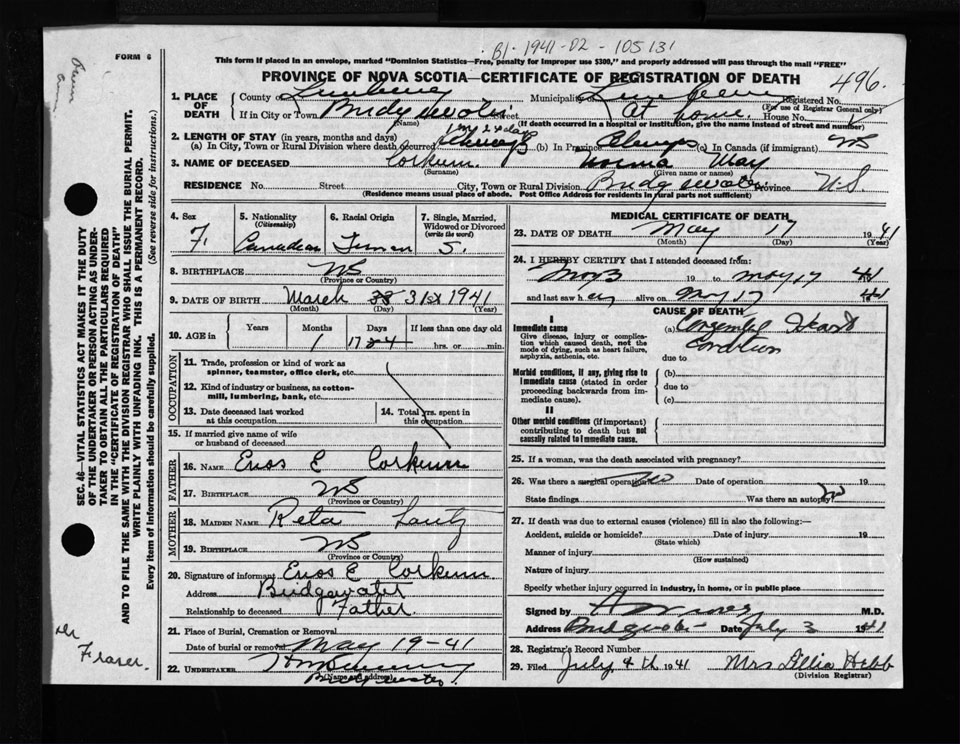 B1·1941-02-105131
FORM 6
This form if placed in an envelope, marked "Dominion Statistics—Free, penalty for improper use $300," and properly addressed will pass through the mail "FREE"
PROVINCE OF NOVA SCOTIA—CERTIFICATE OF REGISTRATION OF DEATH
496.
1. PLACE OF DEATH
County of Lunenburg Municipality Registered No.
(For use of Registrar General only)
If in City or Town Bridgewater Street at home. House No.
(Name) (If death occurred in a hospital or institution, give the name instead of street and number)
2. LENGTH OF STAY (in years, months and days)
(a) In City, Town or Rural Division where death occurred (b) In Province Always (c) In Canada (if immigrant) NS
3. NAME OF DECEASED Corkum. Norma May
(Surname) (Given name or names)
RESIDENCE No. Street City, Town or Rural Division Bridgewater Province N.S
(Residence means usual place of abode. Post Office Address for residents in rural parts not sufficient)
4. Sex
F.
5. Nationality
(Citizenship)
Canadian
6. Racial Origin
7. Single, Married, Widowed or Divorced
(write the word)
S.
8. BIRTHPLACE NS
(Province or Country)
9. DATE OF BIRTH March 31st 1941
(Month) (Day) (Year)
10. AGE in
Years Months Days If less than one day old
1 17 hrs. or min.
OCCUPATION
11. Trade, profession or kind of work as spinner, teamster, office clerk, etc.
12. Kind of industry or business, as cotton-mill, lumbering, bank, etc.
13. Date deceased last worked at this occupation
14. Total yrs. spent in this occupation
15. If married give name of wife or husband of deceased
FATHER
16. NAME Enos E Corkum
17. BIRTHPLACE NS
(Province or Country)
MOTHER
18. MAIDEN NAME Reta Lantz
19. BIRTHPLACE NS
(Province or Country)
20. Signature of informant Enos E Corkum.
Address Bridgewater
Relationship to deceased Father.
21. Place of Burial, Cremation or Removal
Date of burial or removal May 19-41
22. UNDERTAKER
(Name and address)
Bridgewater.
MEDICAL CERTIFICATE OF DEATH
23. DATE OF DEATH May 17 1941
(Month) (Day) (Year)
24. I HEREBY CERTIFY that I attended deceased from:
19 to May 17 41
and last saw her alive on May 17 41
CAUSE OF DEATH
I
Immediate cause
Give disease, injury or complication which caused death, not the mode of dying, such as heart failure, asphyxia, asthenia, etc.
(a) Congenital Heart Condition
due to
Morbid conditions, if any, giving rise to immediate cause (stated in order proceeding backwards from immediate cause).
(b)
due to
(c)
II
Other morbid conditions (if important) contributing to death but not causally related to immediate cause.
25. If a woman, was the death associated with pregnancy?
26. Was there a surgical operation No Date of operation 19
State findings Was there an autopsy No
27. If death was due to external causes (violence) fill in also the following:—
Accident, suicide or homicide? Date of injury 19
(State which)
Manner of injury
(How sustained)
Nature of injury
Specify whether injury occurred in industry, in home, or in public place
Signed by M.D.
Address Bridgewater Date July 3 1941
28. Registrar's Record Number
29. Filed July 4th 1941 Mrs Hebb
(Division Registrar)
SEC. 46—VITAL STATISTICS ACT MAKES IT THE DUTY
OF THE UNDERTAKER OR PERSON ACTING AS UNDER-
TAKER TO OBTAIN ALL THE PARTICULARS REQUIRED
IN THE "CERTIFICATE OF REGISTRATION OF DEATH"
AND TO FILE THE SAME WITH THE DIVISION REGISTRAR WHO SHALL ISSUE THE BURIAL PERMIT.
WRITE PLAINLY WITH UNFADING INK. THIS IS A PERMANENT RECORD.
Every item of information should be carefully supplied. (See reverse side for instructions.)
Dr
Fraser.